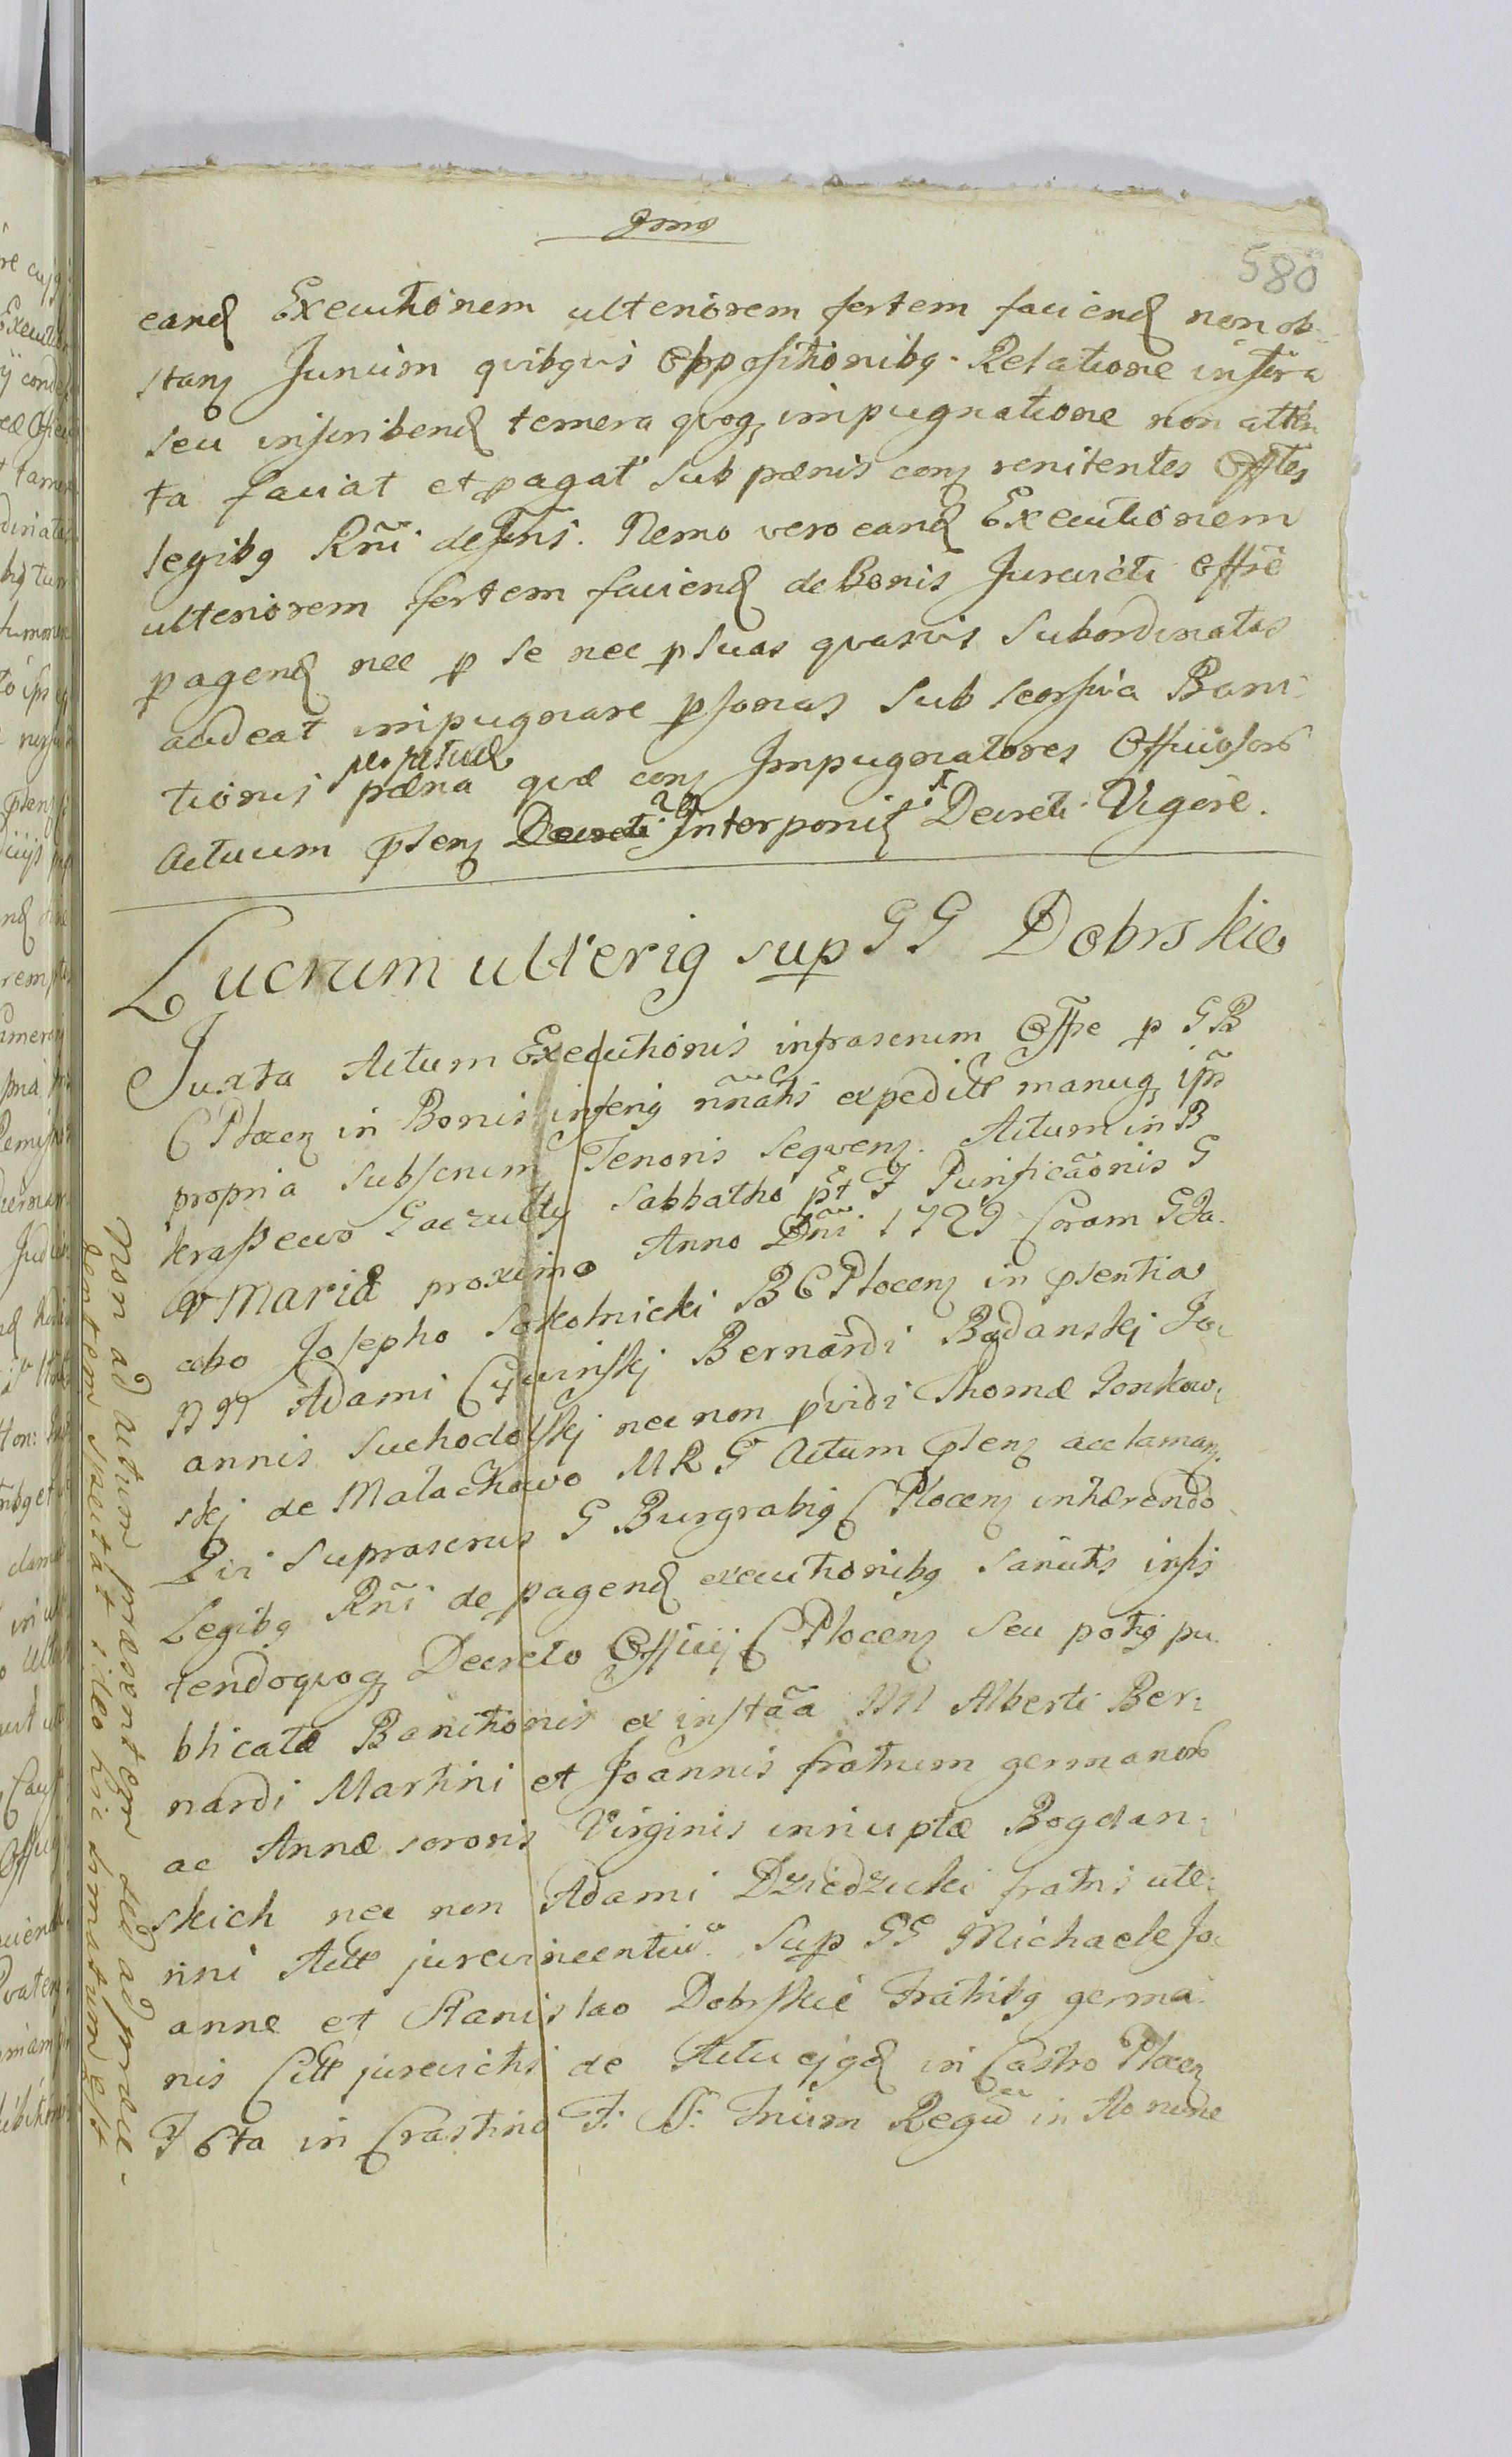 580
eand Executionem ulteriorem sertem faciend non ob-
stanz Junium quibqvis Oppositionibq Relatione insera
seu inscribend temera qvoqz impugnatione non atten
ta faciat et pagat sub pænis conz renitentes Offles
legibq Rñi descris. Nemo vero eand Executionem
ulteriorem sertem faciend de Bonis Jurevicti Offse
pagend nec p se nec p suas qvasvis Subordinatas
audeat impugnare psonas sub seorsiva Bani-
tionis pæna perpetuæ quæ conz Impugnatores Officiosorb
Actuum psenz Interponit Decreti Vigore.
Lucrum ulterig sup GG Dobrskie
Juxta Actum Executionis infrascrum Offse p GB
C Plocenz in Bonis inferig nñatis expedite manuqz ipñ
propria subscrum Tenoris seqvenz. Actum in B
Kraszewo Gaczulty Sabbatho pt F Purificãonis G
V Mariæ proximo Anno Dñi 1729 Coram GJa-
cobo Josepho Sokolnicki B C Plocenz in psentia
NN Adami Cywinskj Bernardi Bogdanskj Jo-
annis Suchodolskj nec non pvidi Thomæ Jonkow-
skj de Malachowo MRG Actum psenz acclamanz.
Qui suprascrus G Burgrabiq C Plocenz inhærendo
Legibq Rñi de pagend executionibq sancitis insis
tendoqvoqz Decreto Officij C Plocenz seu potiq pu-
blicatæ Banitionis ex instãa NN Alberti Ber-
nardi Martini et Joannis fratrum germanorb
ac Annæ sororis Virginis innuptæ Bogdan-
skich nec non Adami Dziedzicki fratris ute-
rini Actt jurevincentiu Sup GG Michaele Jo-
anne et Stanislao Dobrskie Fratribq germa-
nis Citt jurevictis de Actu ejqd in Castro Plocenz
F 6ta in Crastino F. SS. Trium Regũ in Ao nunc
Non ad actum præsentem sed ad præce-
dentem spectat ideo hic dimissum est